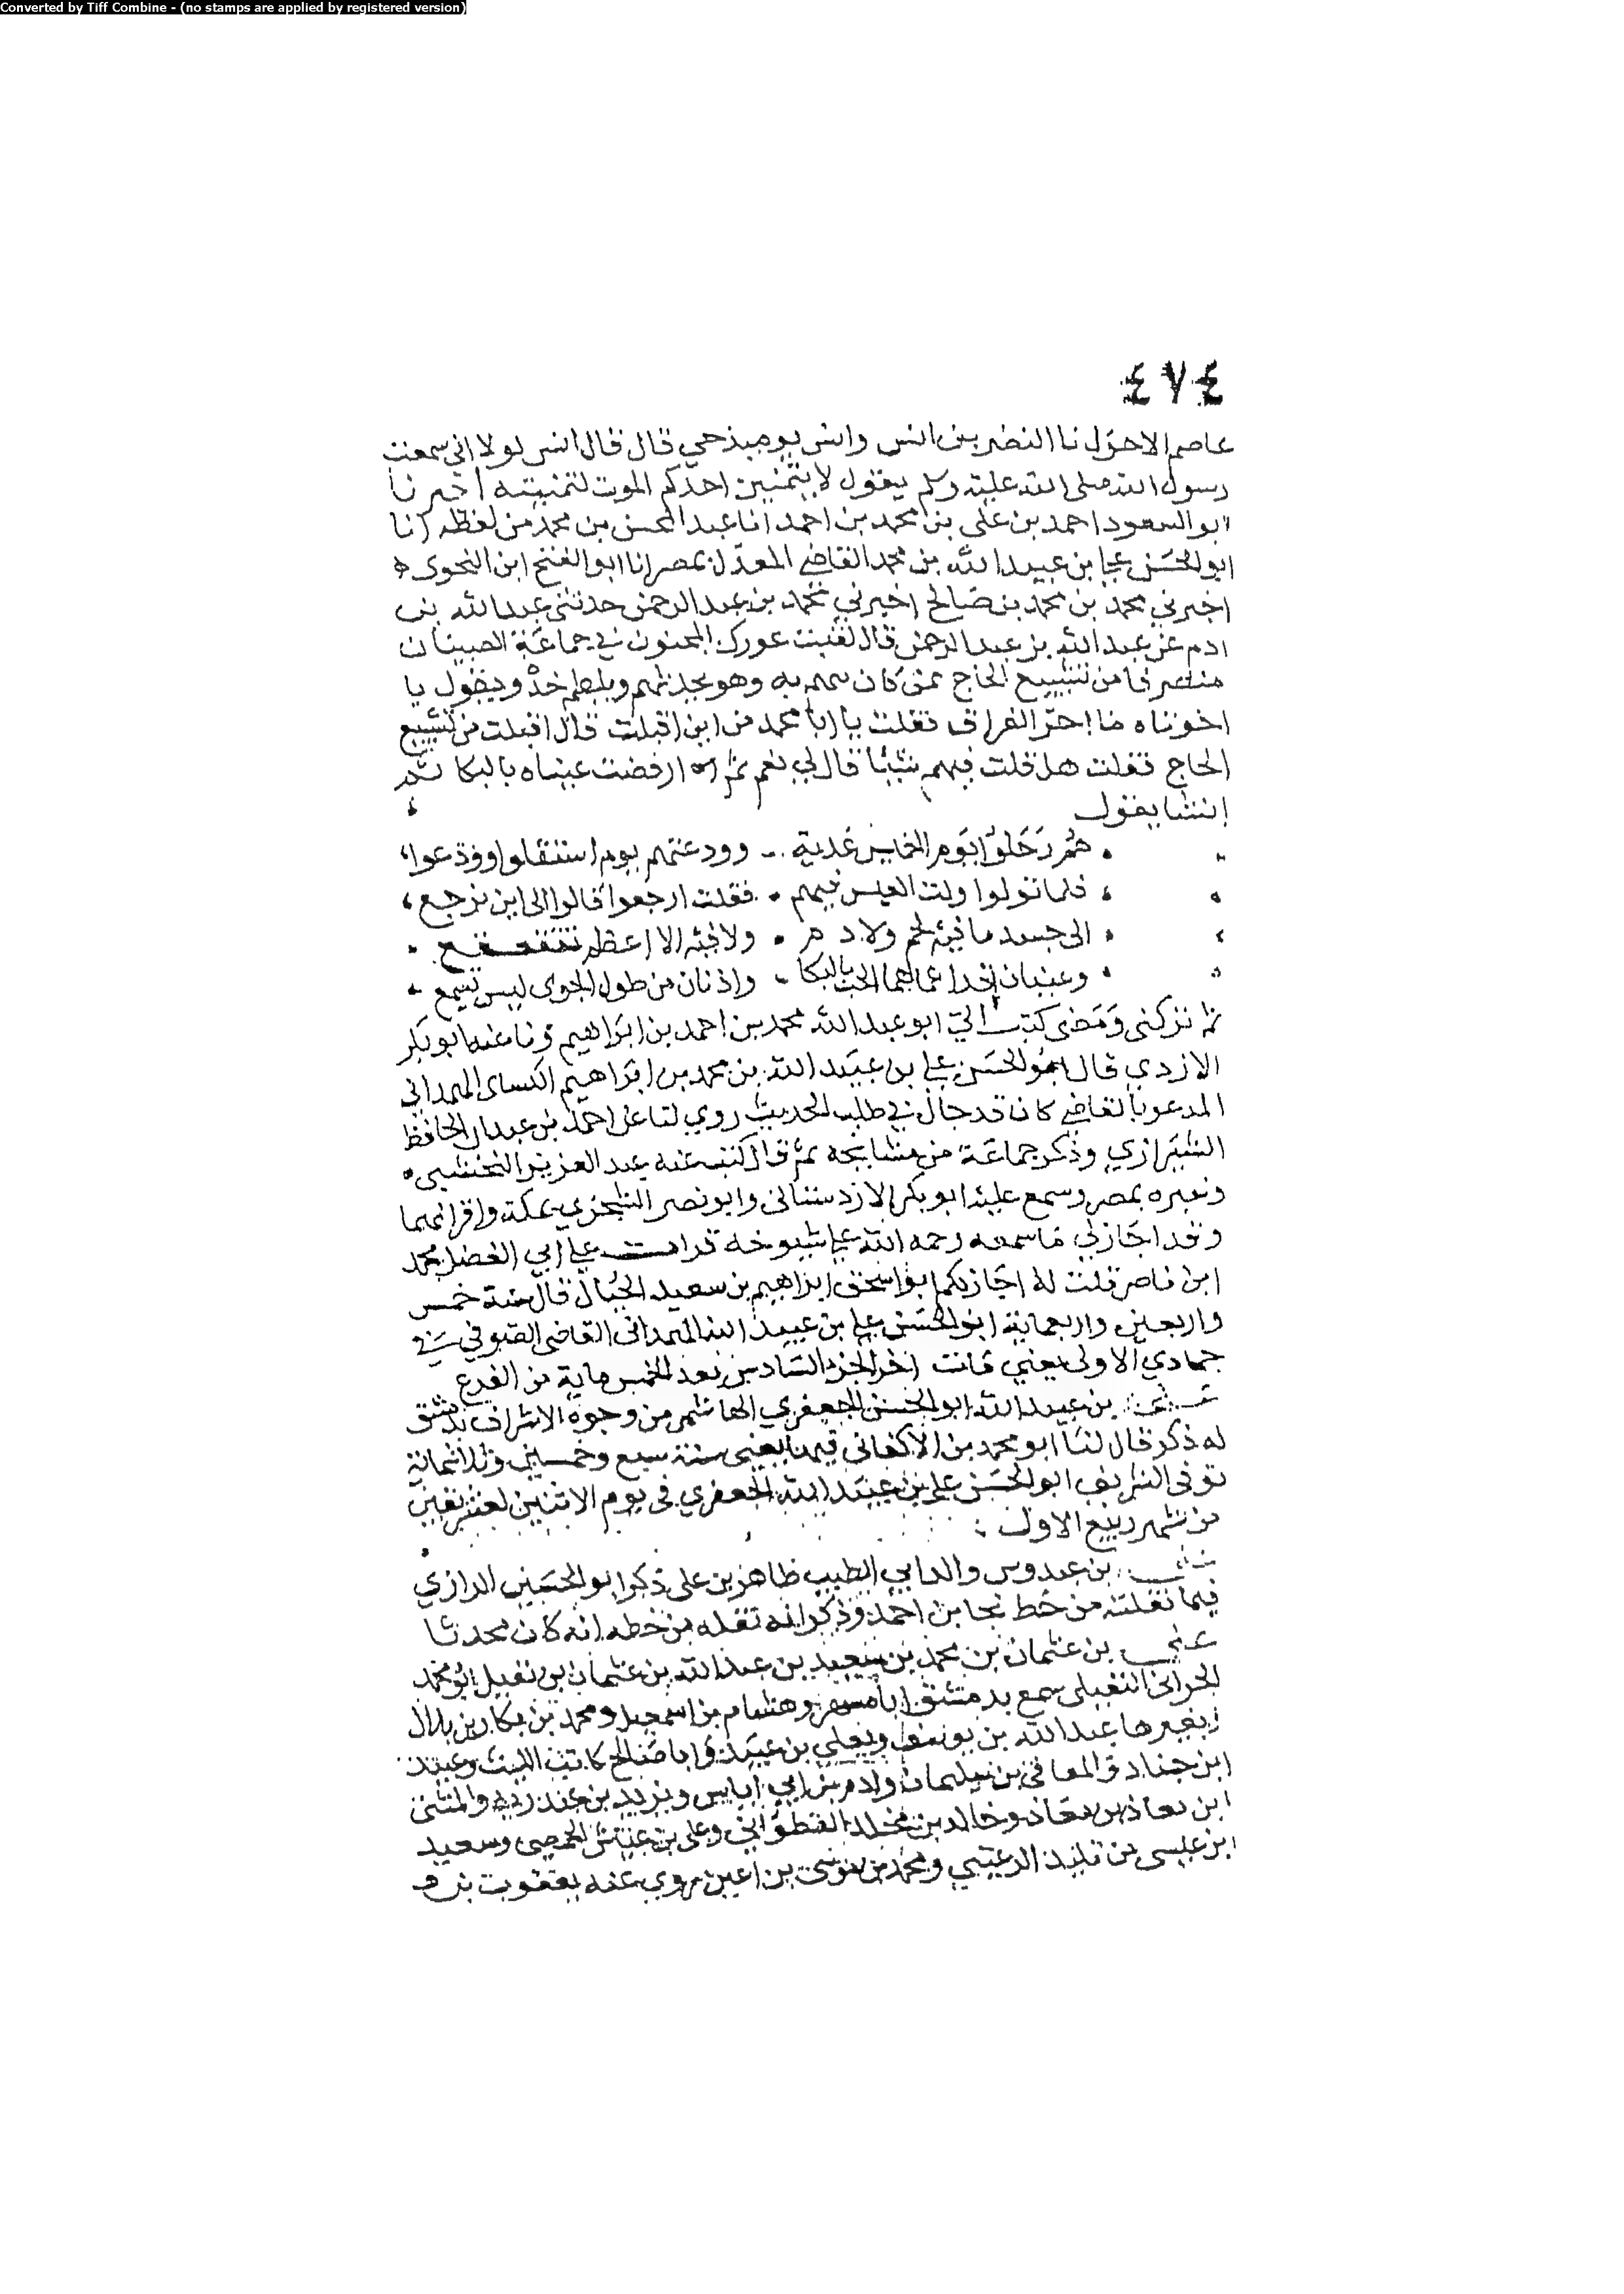 Converted by Tiff Combine - (no stamps are applied by registered version)
٤٧٤
عاصم الاحول نا النضر بن انس وانس يوميذ حي قال قال انس لولا اني سمعت
رسول الله صلى الله عليه وسلم يقول لا يتمنين احدكم الموت لتمنيته اخبرنا
ابو السعود احمد بن على بن محمد بن احمد انا عبد المحسن بن محمد من لفظه انا
ابو الحسن علي بن عبيد الله بن محمد القاضي المعدل بمصر انا ابو الفتح ابن النحوى
اخبرني محمد بن محمد بن صالح اخبرني محمد بن عبد الرحمن حدثني عبد الله بن
ادم عن عبد الله بن عبد الرحمن قال لقيت عورك المجنون في جماعة الصبيان
منصرفا من تشييع الحاج وهو يجذبهم ويلطم خده ويقول يا
اخوتاه ما احر الفراق فقلت يا ابا محمد من اين اقبلت قال اقبلت من تشييع
الحاج فقلت هل قلت فيهم شيئا قال لي نعم ثم ارفضت عيناه بالبكا ثم
انشا يقول
هم رحلوا يوم الخميس غدية وودعتهم يوم استقلوا وودعوا
فلما تولوا ولت العيس فيهم فقلت ارجعوا قالوا الى اين نرجع
الى جسد ما فيه لحم ولا دم ولا فيه الا اعظم تتقعقع
وعينان بالبكا واذنان من طول الجوى ليس تسمع
ثم تركني ومضى كتب الي ابو عبد الله محمد بن احمد بن ابراهيم ونا عنه ابو بكر
الازدي قال ابو الحسن علي بن عبيد الله بن محمد بن ابراهيم الكساى الهمداني
المدعو بالقاضي كان قد جال في طلب الحديث روى لنا عن احمد بن عبدان الحافظ
الشيرازي وذكر جماعة من مشايخه ثم قال كتب عنه عبد العزيز النخشبي
وغيره بمصر وسمع عليه ابو بكر الازدستاني وابو نصر السجزي بمكة واقرانهما
وقد اجازلي ما سمعه رحمه الله على شيوخه قرات على ابي الفضل محمد
ابن ناصر قلت له اجازلكم ابو اسحق ابراهيم بن سعيد الحبال قال سنة خمس
واربعين واربعماية ابو الحسن علي بن عبيد الله الهمداني القاضي الصوفي في
جمادي الاولى يعني مات اخر الجزء السادس بعد الخمس ماية من الفرع
بن عبيد الله ابو الحسن الجعفري الهاشمي من وجوه الاشراف بدمشق
له ذكر قال لنا ابو محمد بن الاكفاني فيها يعني سنة سبع وخمسين وثلاثماية
توفى الشريف ابو الحسن علي بن عبيد الله الجعفري في يوم الاثنين لعشر بقين
من شهر ربيع الاول
بن عبدوس والد ابي الطيب طاهر بن على ذكر ابو الحسين الرازي
فيما نقلته من خط نجا بن احمد وذكر انه نقله من خطه انه كان محدثا
علي بن عثمان بن محمد بن سعيد بن عبد الله بن عثمان بن نفيل ابو محمد
الحراني النفيلي سمع بدمشق ابا مسهر وهشام بن اسمعيل ومحمد بن بكار بن بلال
وبغيرها عبد الله بن يوسف ويعلي بن عبيد وابا صالح كاتب الليث وعبيد
ابن جناد والمعافى بن سليمان وادم بن ابي اياس ويزيد بن عبد ربه والمثنى
ابن معاذ بن معاذ وخالد بن مخلد القطواني وعلى بن عياش الحمصي وسعيد
ابن عيسى بن تليد الرعيني ومحمد بن موسى بن اعين روى عنه يعقوب بن